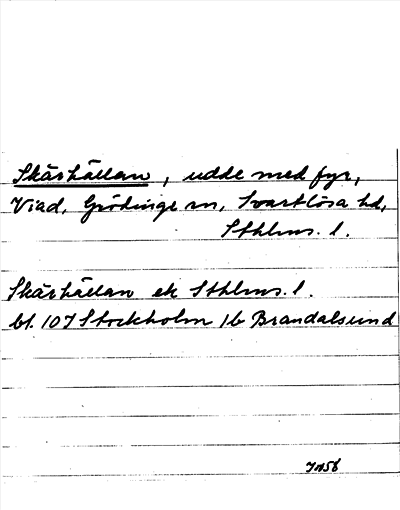 Skärhällan, udde med fyr,
Viad, Grödinge sn, Svartlösa hd,
Sthlms. l.
Skärhällan ek Sthlms. l.
bl. 10 I Stockholm 1b Brandalsund